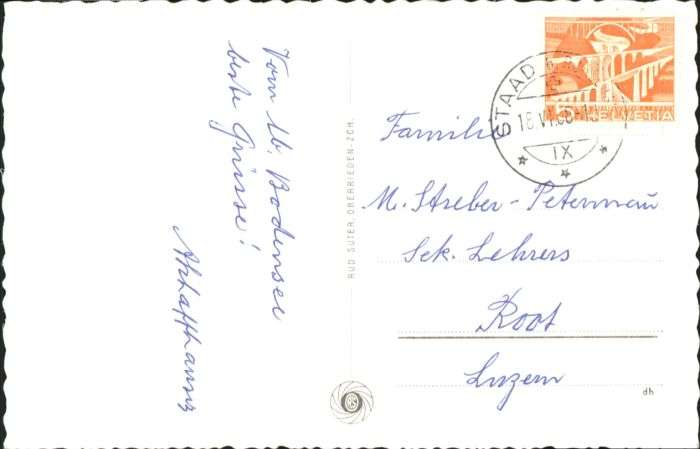 Vom lb. Bodensee
beste Grüsse!
RUD. SUTER, OBERRIEDEN-ZCH.
STAAD
18.VI.
IX
HELVETIA
Familie
M. Streber-Petermann
Sek. Lehrers
Root
Luzern
dh